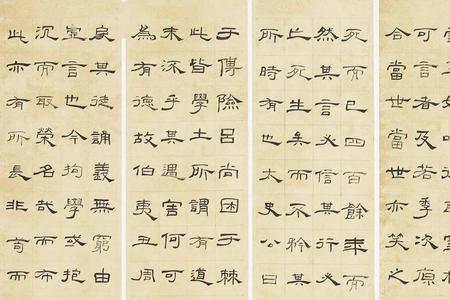 可言者及若季次原
合當世當世亦笑之
死而已四百餘年而
然其言必信其行必
亡死生矣而不矜其
所時有也大史公曰
于傅險呂尚困于棘
此皆學士所謂有道
末流乎其遇害何可
為有德故伯夷丑周
戾其徒誦義無窮由
虛言也今拘學或抱
沉而取榮名哉而布
此亦有所長非苟而